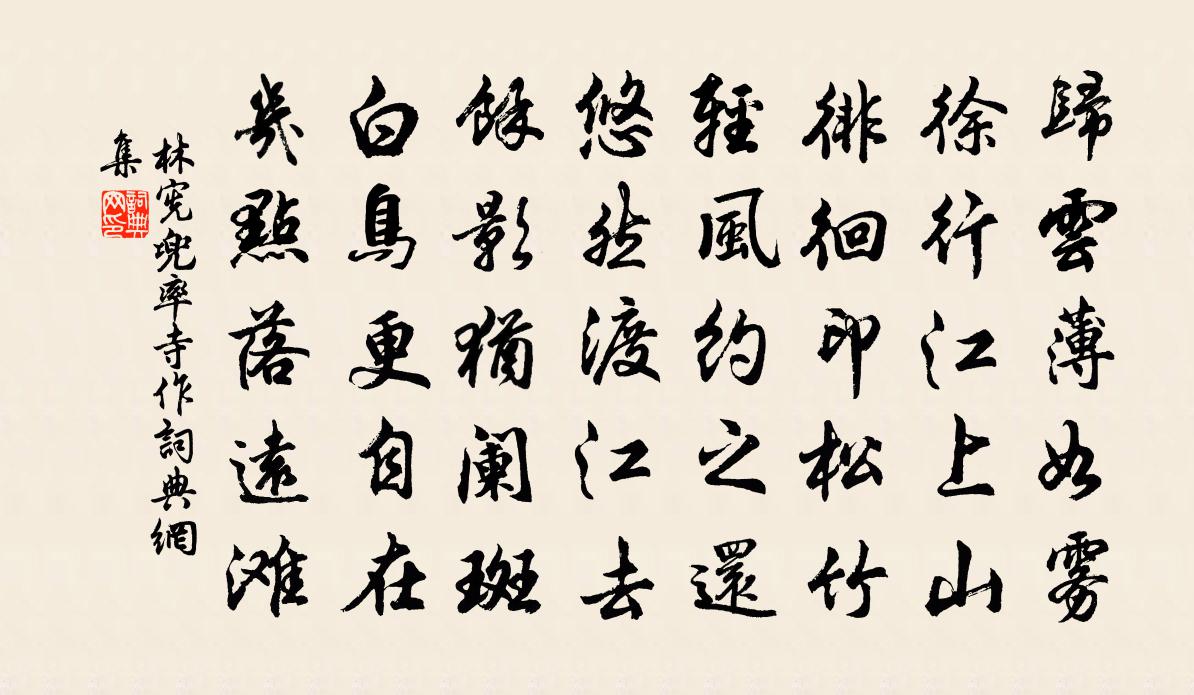 歸雲薄如雾
徐行江上山
徘徊印松竹
輕風約之還
悠然渡江去
餘影猶阑斑
白鳥更自在
幾點落遠滩
林宪兜率寺作詞典網
集
詞典網印